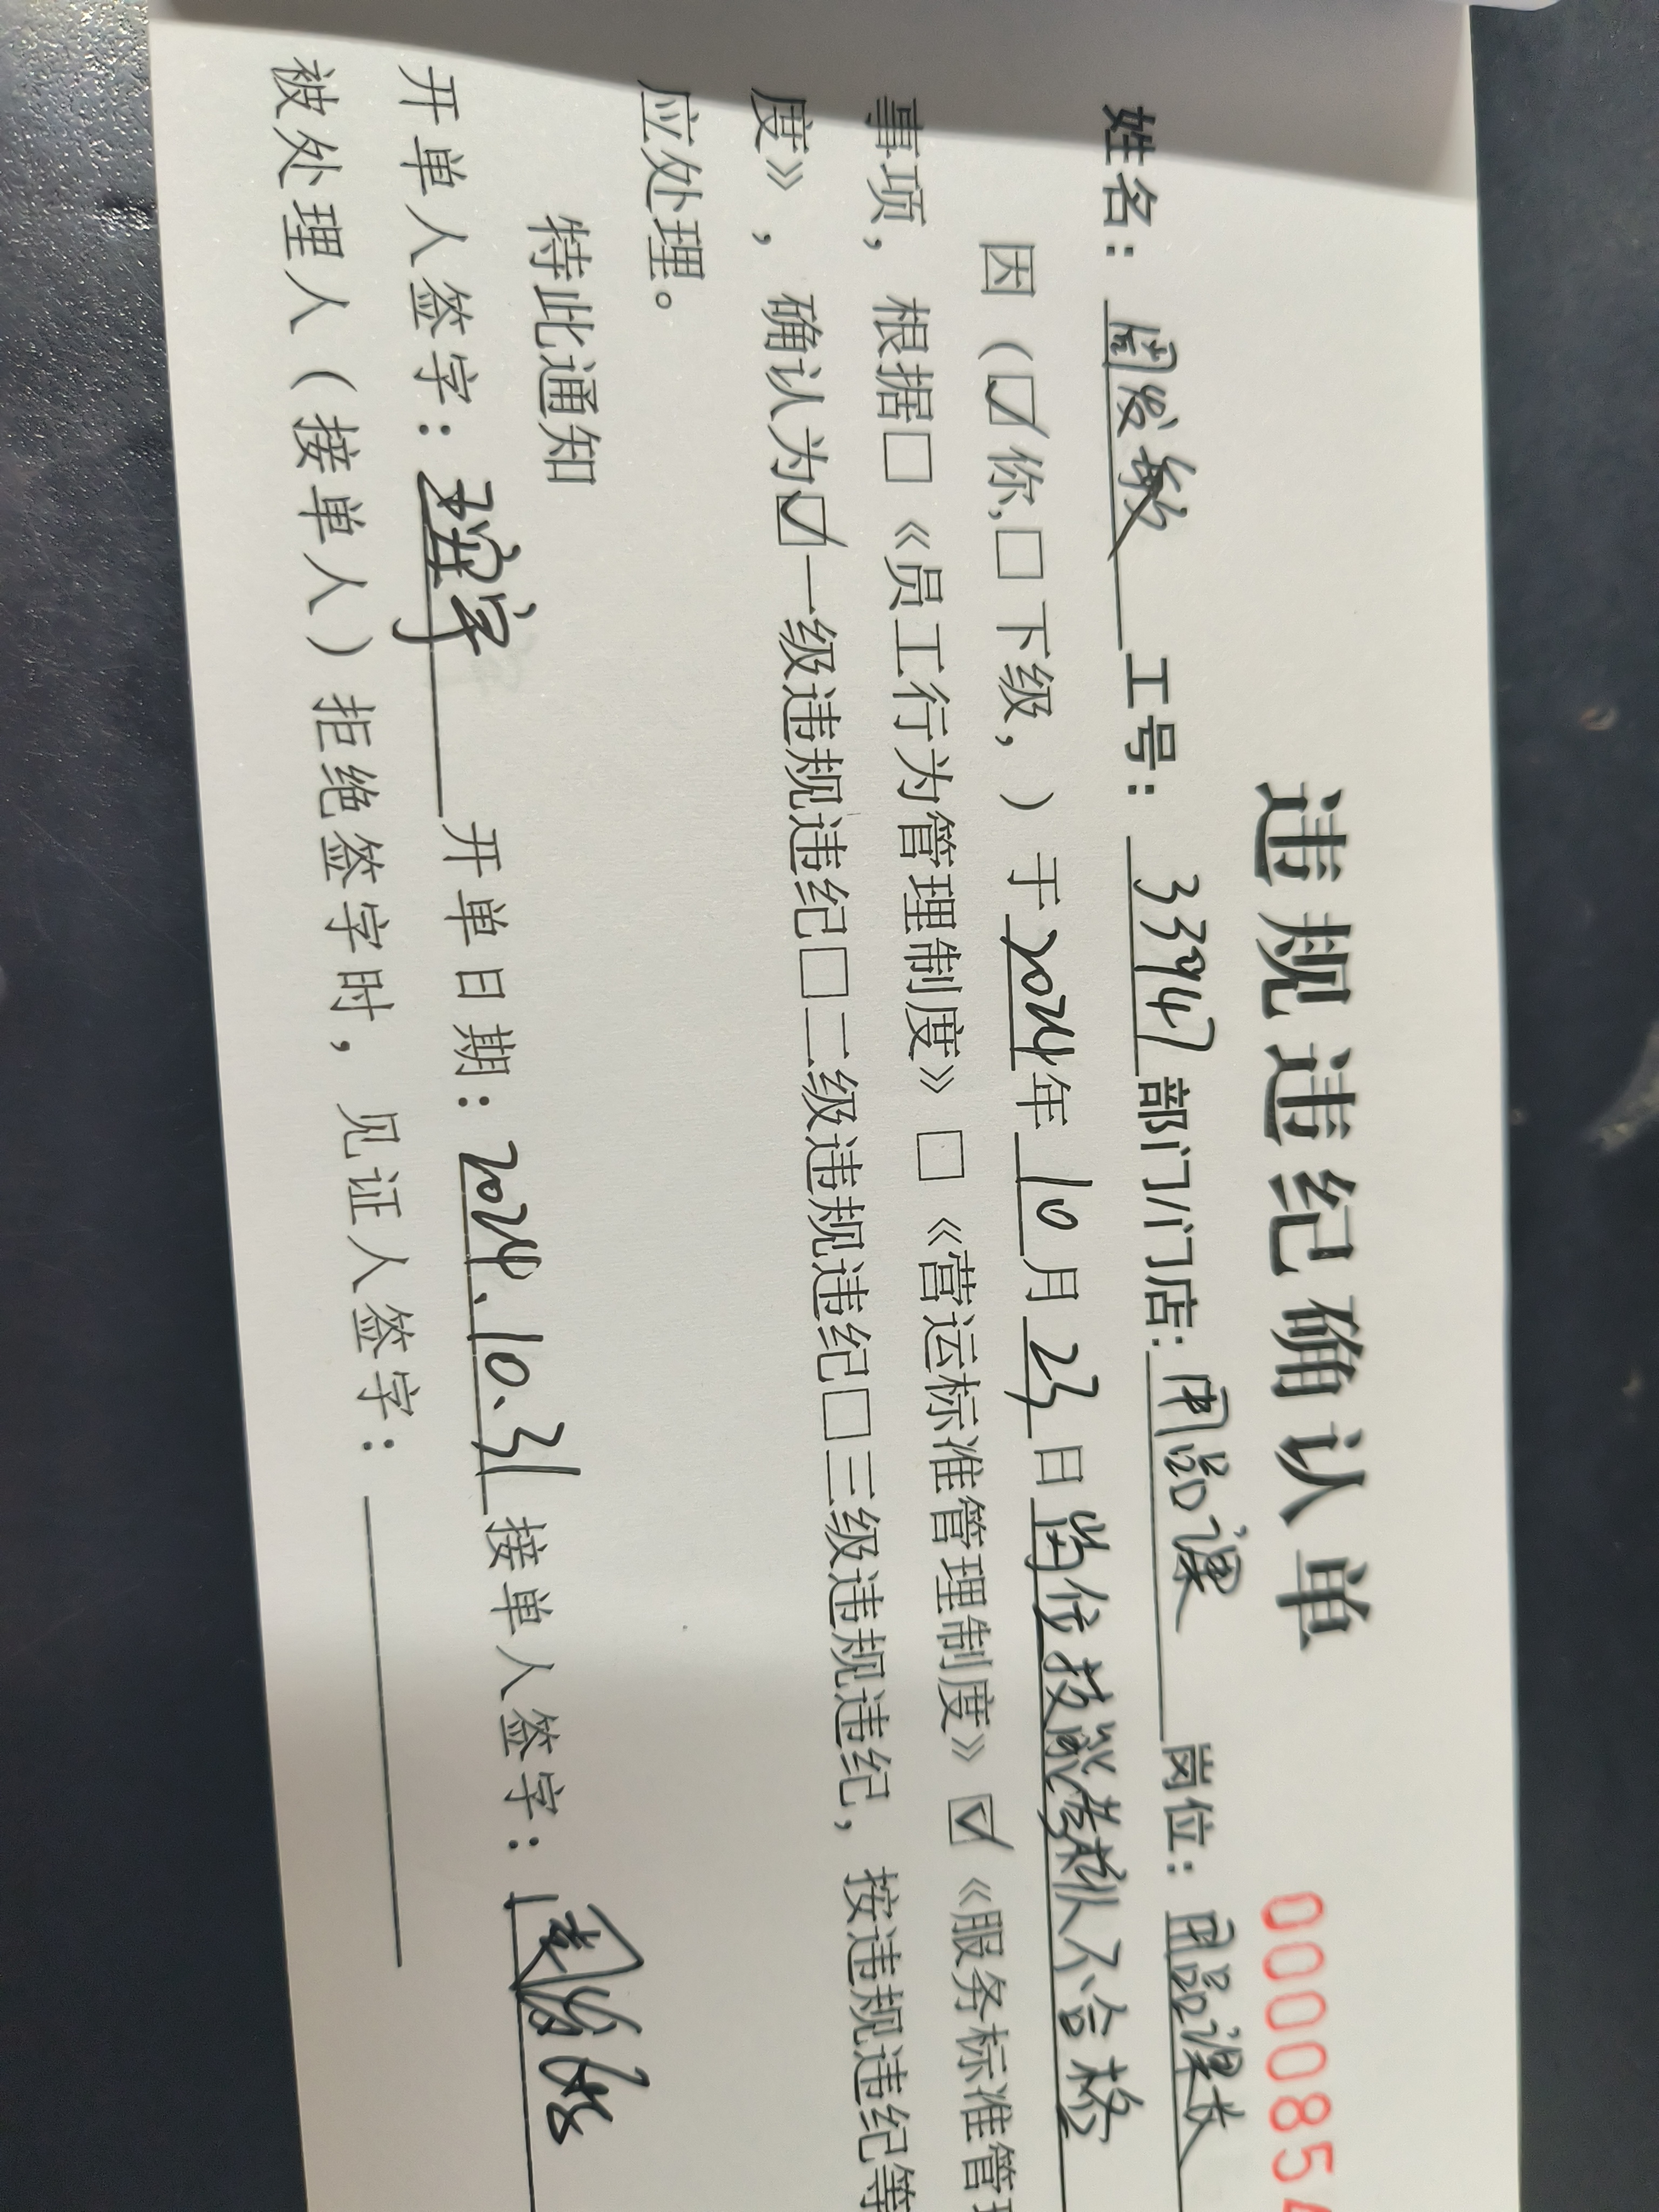 违规违纪确认单
0000854
姓名：周发敏 工号：33947 部门/门店：用品课 岗位：用品课长
因（☑你,□下级，）于2024年10月23日岗位技能考核不合格
事项，根据□《员工行为管理制度》□《营运标准管理制度》☑《服务标准管理
度》，确认为☑一级违规违纪□二级违规违纪□三级违规违纪，按违规违纪等
应处理。
特此通知
开单人签字： 开单日期：2024.10.31 接单人签字：
被处理人（接单人）拒绝签字时，见证人签字：